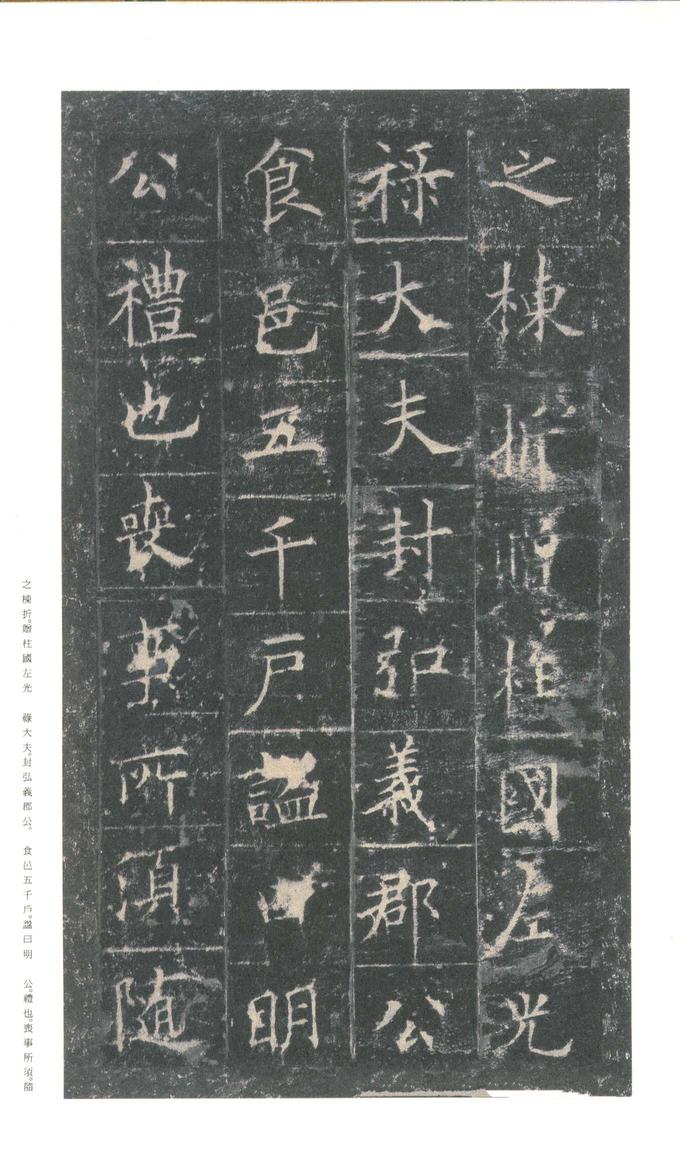 之棟折贈柱國左光
祿大夫封弘義郡公
食邑五千戶謚曰明
公禮也喪事所須隨
之棟折。贈柱國左光 祿大夫。封弘義郡公。 食邑五千戶。謚曰明 公。禮也。喪事所須。隨